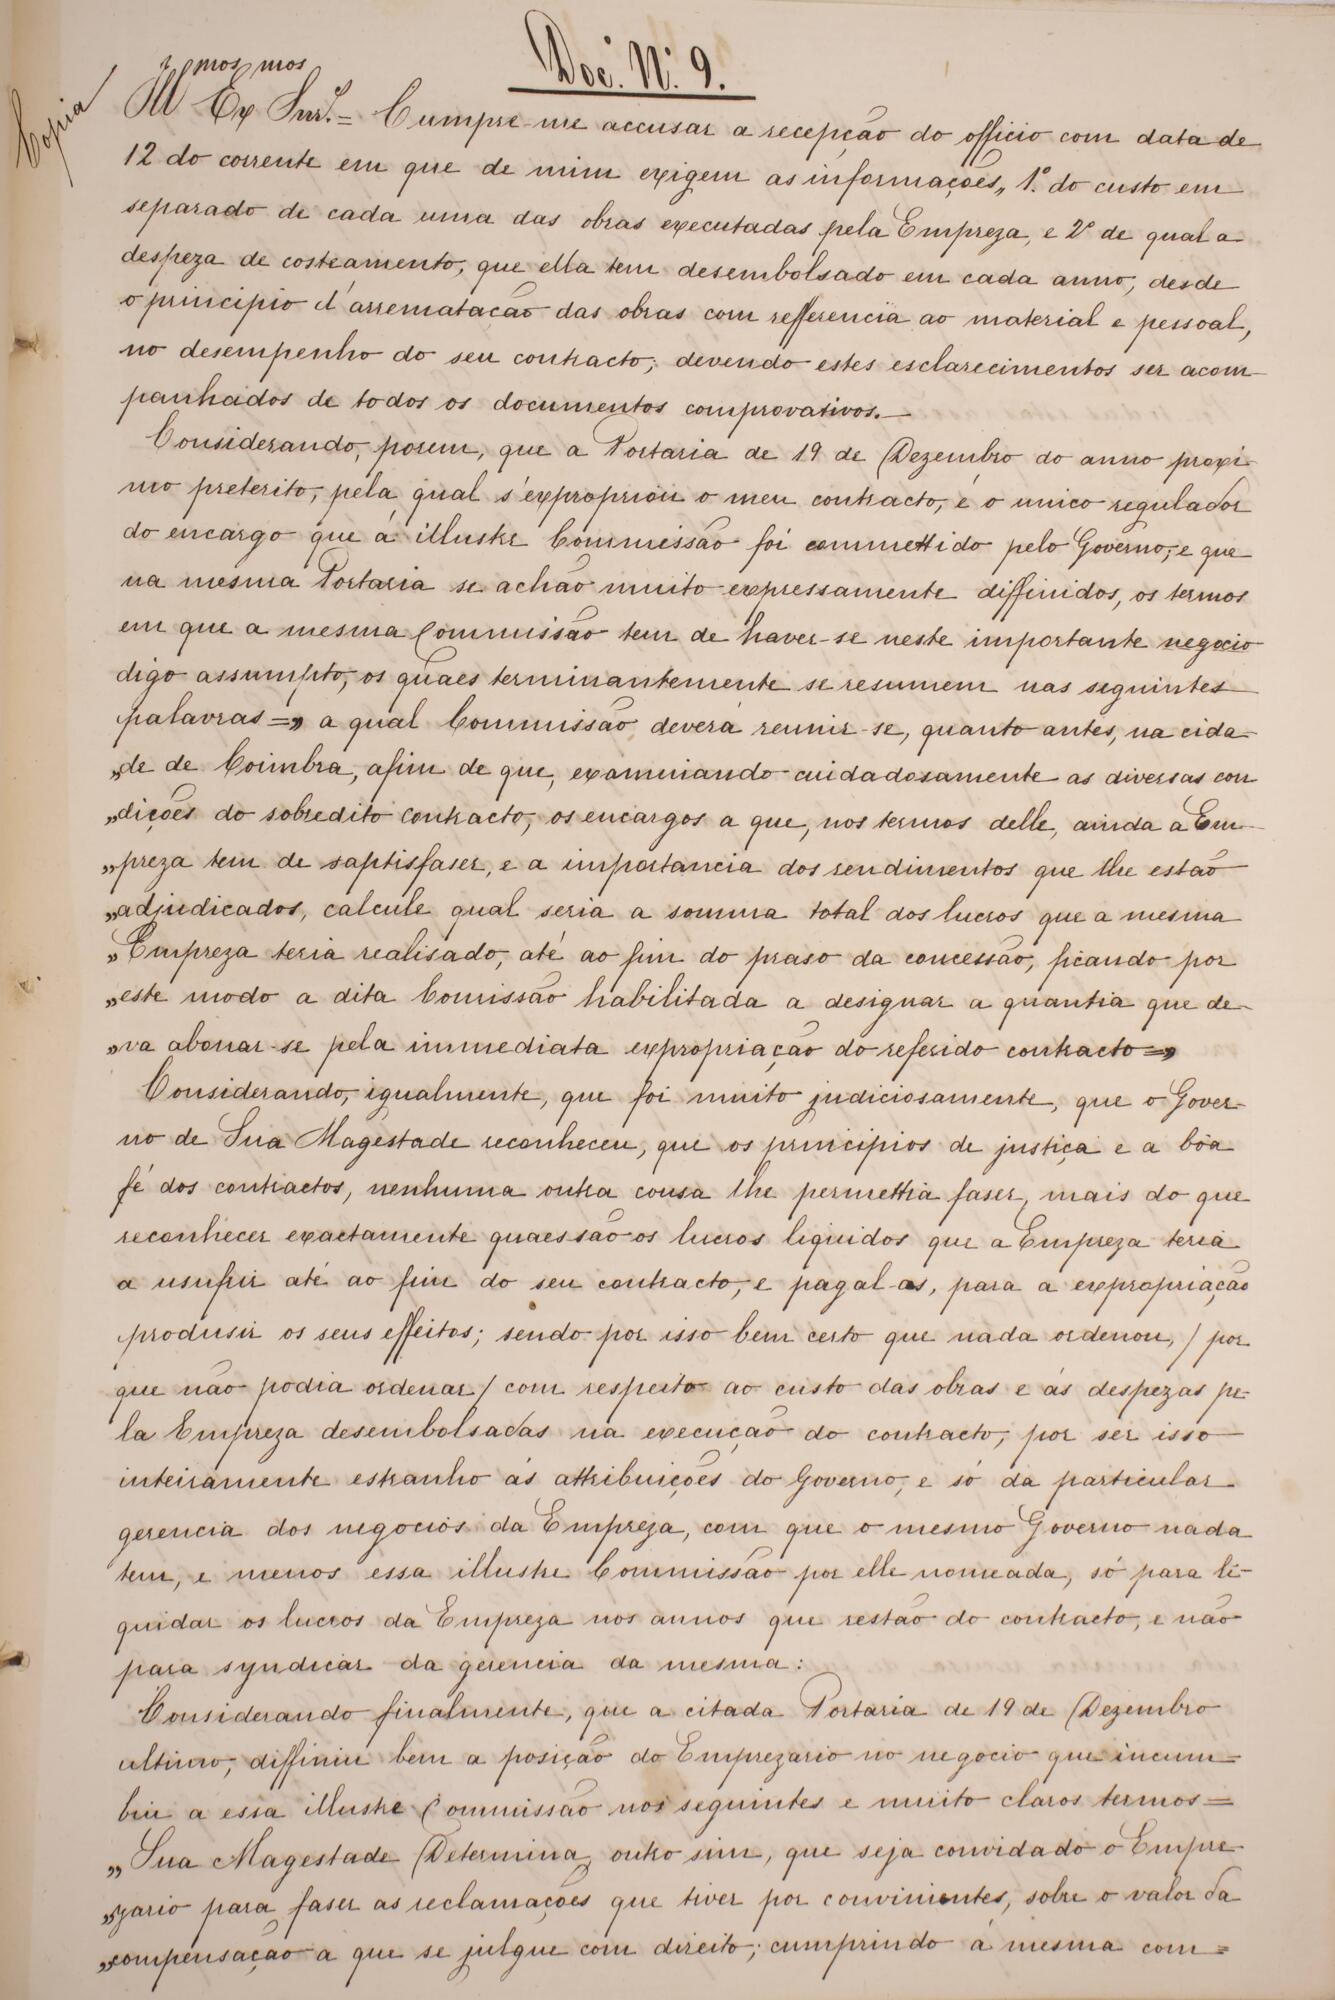 Doc. N.º 9.
Copia
Illmos Exmos Snrs. = Cumpre-me accusar a recepção do officio com data de
12 do corrente em que de mim exigem as informações „ 1.º do custo em
separado de cada uma das obras executadas pela Empreza, e 2º de qual a
despeza de costeamento, que ella tem desembolsado em cada anno, desde
o principio d'arrematação das obras com refferencia ao material e pessoal,
no desempenho do seu contracto; devendo estes esclarecimentos ser acom-
panhados de todos os documentos comprovativos.—
Considerando, porem, que a Portaria de 19 de Dezembro do anno proxi-
mo preterito, pela qual s'expropriou o meu contracto, é o unico regulador
do encargo que á illustre Commissão foi commettido pelo Governo, e que
na mesma Portaria se achão muito expressamente diffinidos, os termos
em que a mesma Commissão tem de haver-se neste importante negocio
digo assumpto, os quaes terminantemente se resumem nas seguintes
palavras =„ a qual Commissão deverá reunir-se, quanto antes, na cida-
„de de Coimbra, afim de que, examinando cuidadosamente as diversas con
„dições do sobredito contracto, os encargos a que, nos termos delle, ainda a Em-
„preza tem de saptisfaser, e a importancia dos rendimentos que lhe estão
„adjudicados, calcule qual seria a somma total dos lucros que a mesma
„Empreza teria realisado, até ao fim do praso da concessão, ficando por
„este modo a dita Comissão habilitada a designar a quantia que de-
„va abonar-se pela immediata expropriação do referido contracto =„
Considerando, igualmente, que foi muito judiciosamente, que o Gover-
no de Sua Magestade reconheceu, que os principios de justiça e a bôa
fé dos contractos, nenhuma outra cousa lhe permettia faser, mais do que
reconhecer exactamente quaes são os lucros liquidos que a Empreza teria
a usufrir até ao fim do seu contracto, e pagal-as, para a expropriação
produsir os seus effeitos; sendo por isso bem certo que nada ordenou, / por
que não podia ordenar / com respeito ao custo das obras e ás despezas pe-
la Empreza desembolsadas na execução do contracto, por ser isso
inteiramente estranho ás attribuições do Governo, e só da particular
gerencia dos negocios da Empreza, com que o mesmo Governo nada
tem, e menos essa illustre Commissão por elle nomeada, só para li-
quidar os lucros da Empreza nos annos que restão do contracto, e não
para syndicar da gerencia da mesma:
Considerando finalmente, que a citada Portaria de 19 de Dezembro
ultimo, diffiniu bem a posição do Emprezario no negocio que incum=
biu a essa illustre Commissão nos seguintes e muito claros termos =
„Sua Magestade Determina, outro sim, que seja convidado o Empre-
„zario para faser as reclamações que tiver por convinientes, sobre o valor da
„compensação a que se julgue com direito; cumprindo á mesma com=